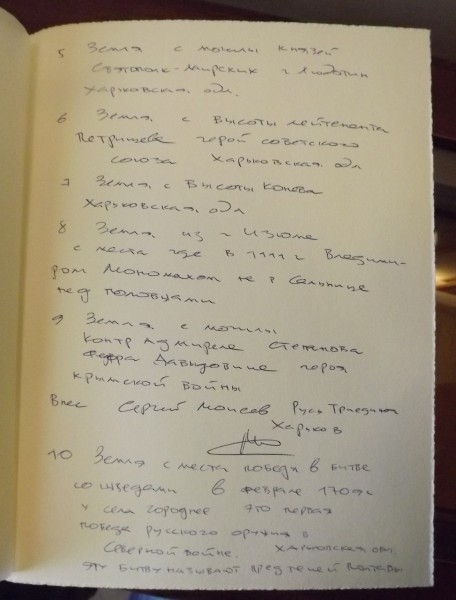 5 Земля с могилы князей
Святополк-Мирских г Люботин
Харьковская обл.
6 Земля с Высоты лейтенанта
Петрищева герой советского
союза Харьковская обл
7 Земля с Высоты Конева
Харьковская обл
8 Земля из г Изюма
с места где в 1111 г Владими-
ром Мономахом на р Сальнице
над половцами
9 Земля с могилы
контр адмирала Степанова
Федора Давыдовича героя
крымской войны
Внес Сергей Моисеев Русь Триединая
Харьков
10 Земля с места победы в битве
со шведами в феврале 1709г
у села городнее это первая
победа русского оружия в
Северной войне. Харьковская обл.
эту битву называют предтечей Полтавы